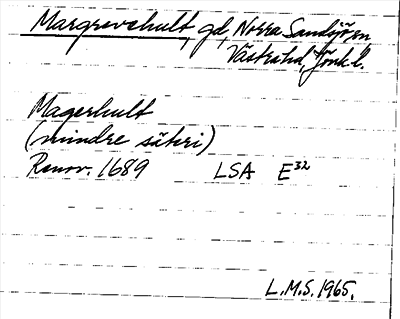 Margrevehult, gd, Norra Sandsjö sn
Västra hd, Jönk. l.
Magerhult
(mindre säteri)
Renov. 1689 LSA E32
L.M.S. 1965.